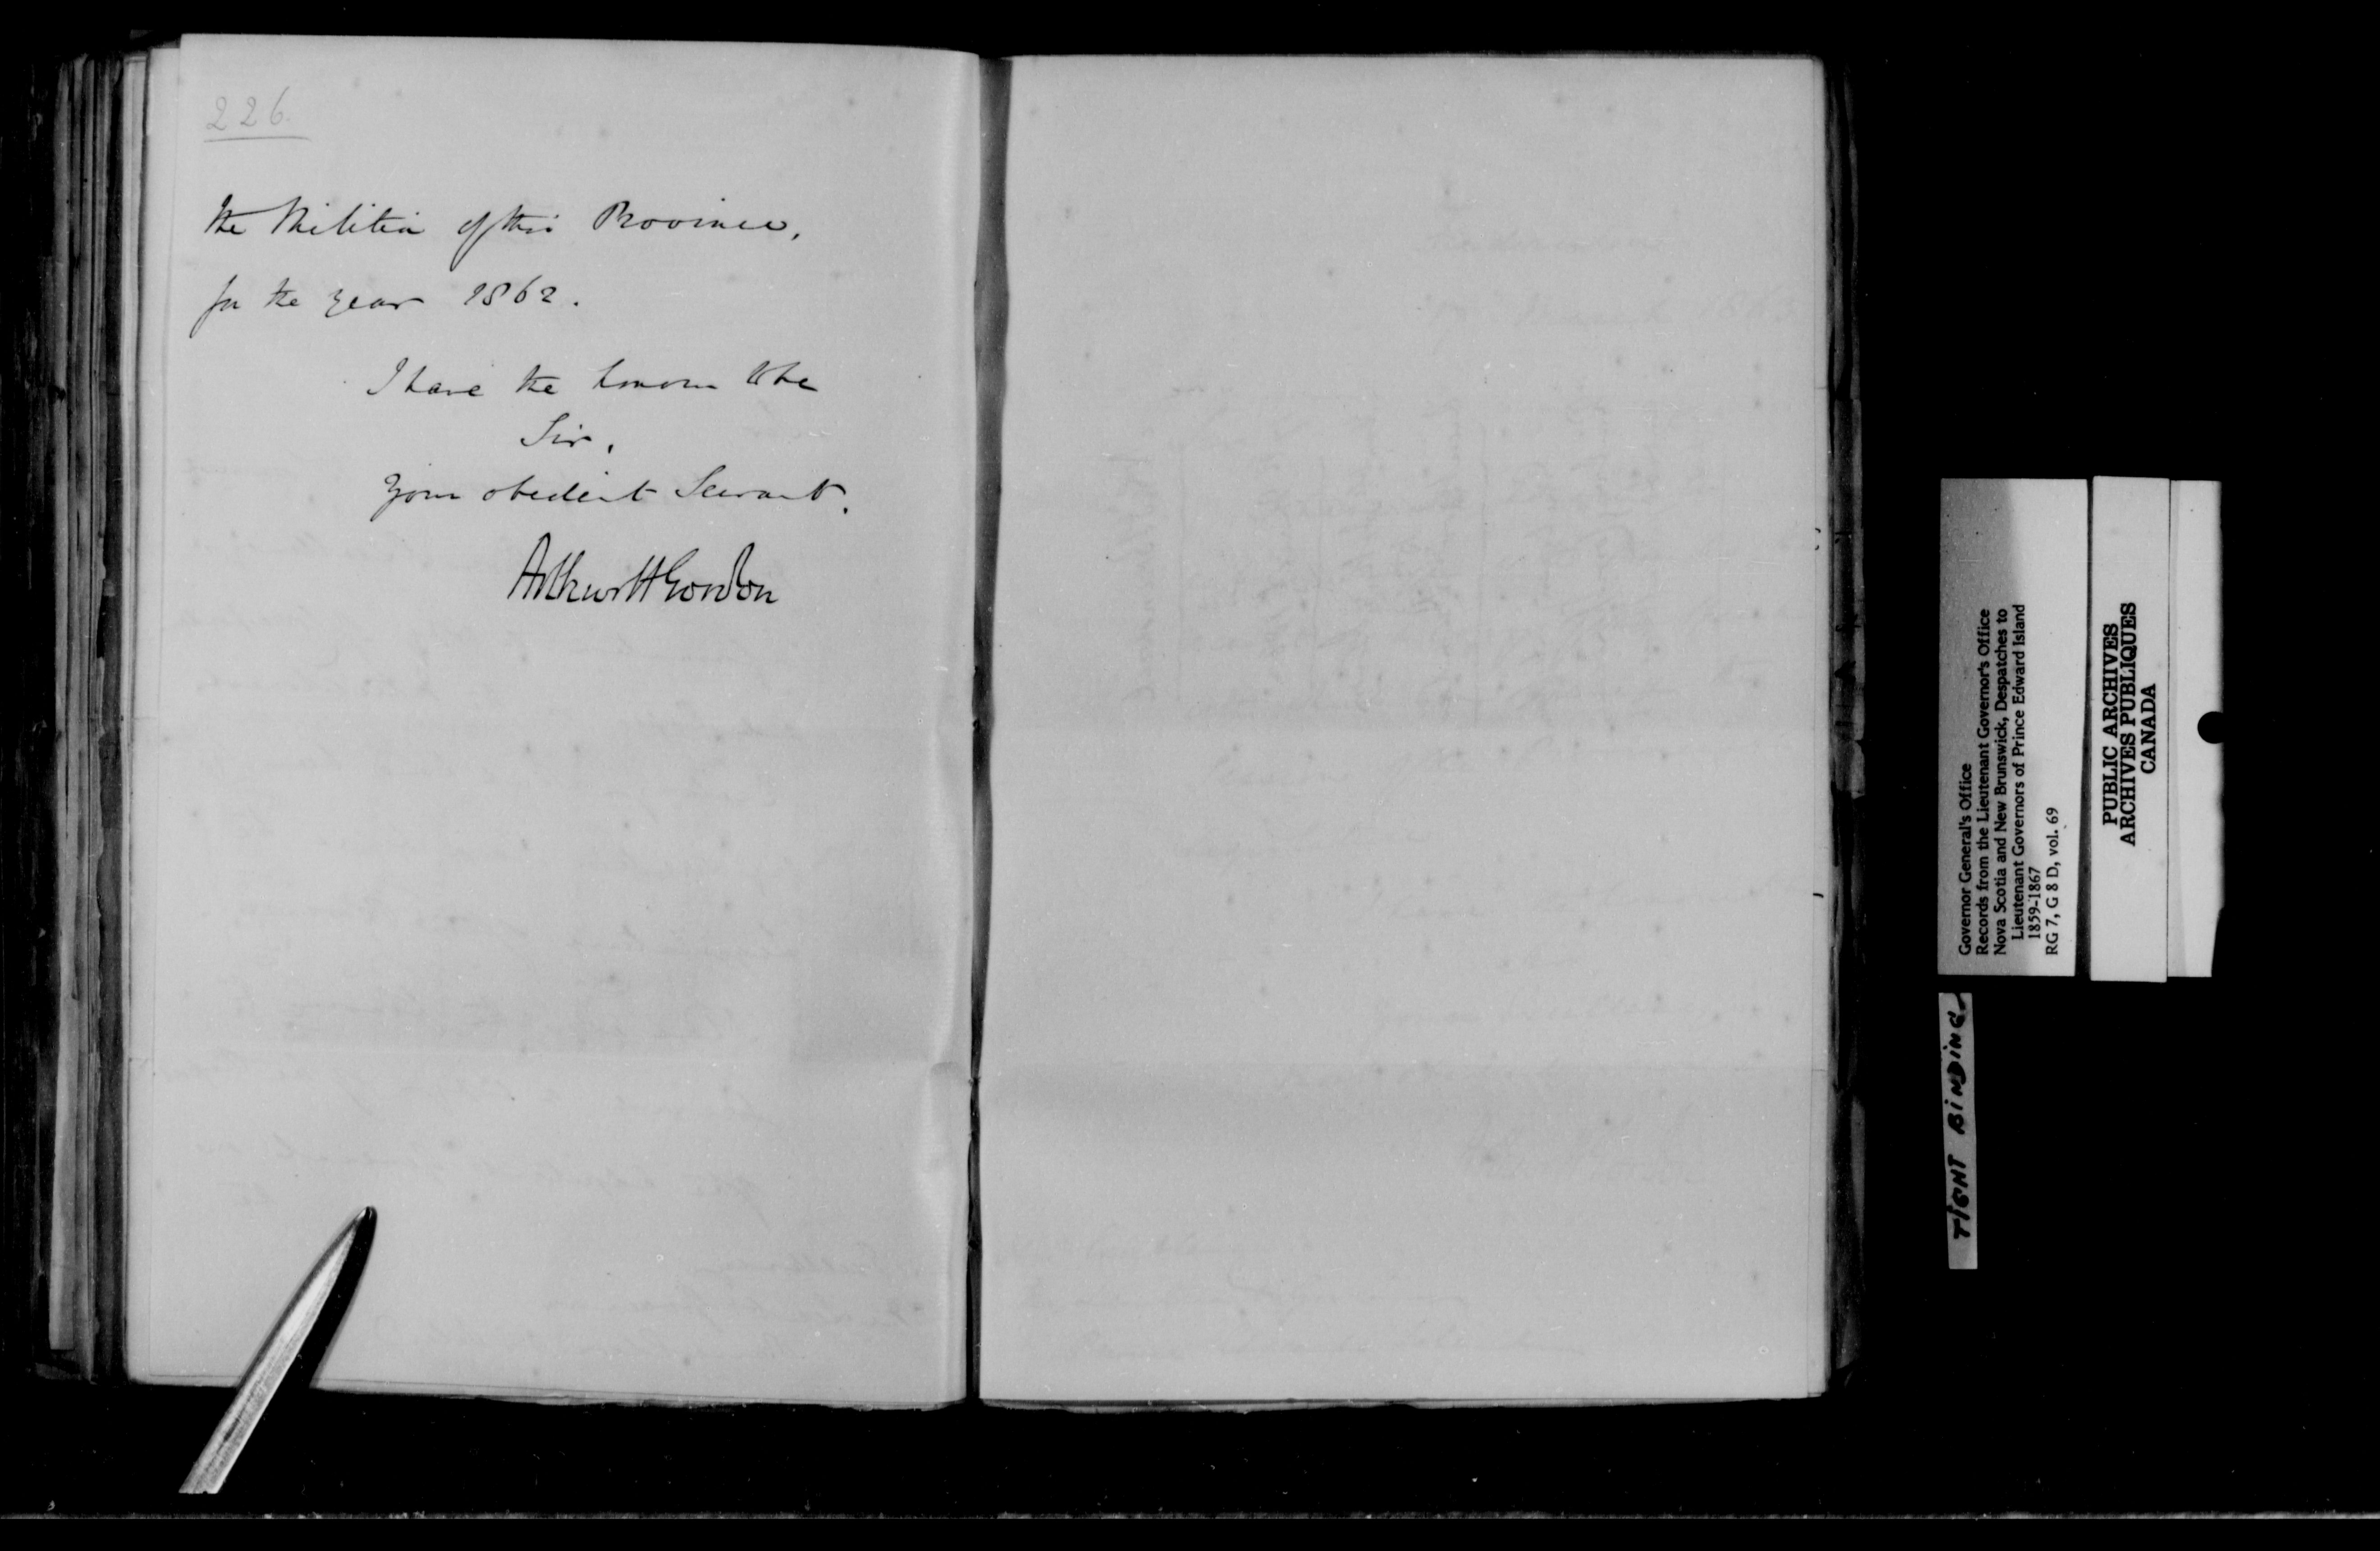 226.
the Militia of this Province,
for the year 1862.
I have the honour to be
Sir,
Your obedient Servant.
Arthur H Gordon
Governor General's Office
Records from the Lieutenant Governor's Office
Nova Scotia and New Brunswick, Despatches to
Lieutenant Governors of Prince Edward Island
1859-1867
RG 7, G 8 D, vol. 69
PUBLIC ARCHIVES
ARCHIVES PUBLIQUES
CANADA
TIGHT BINDING